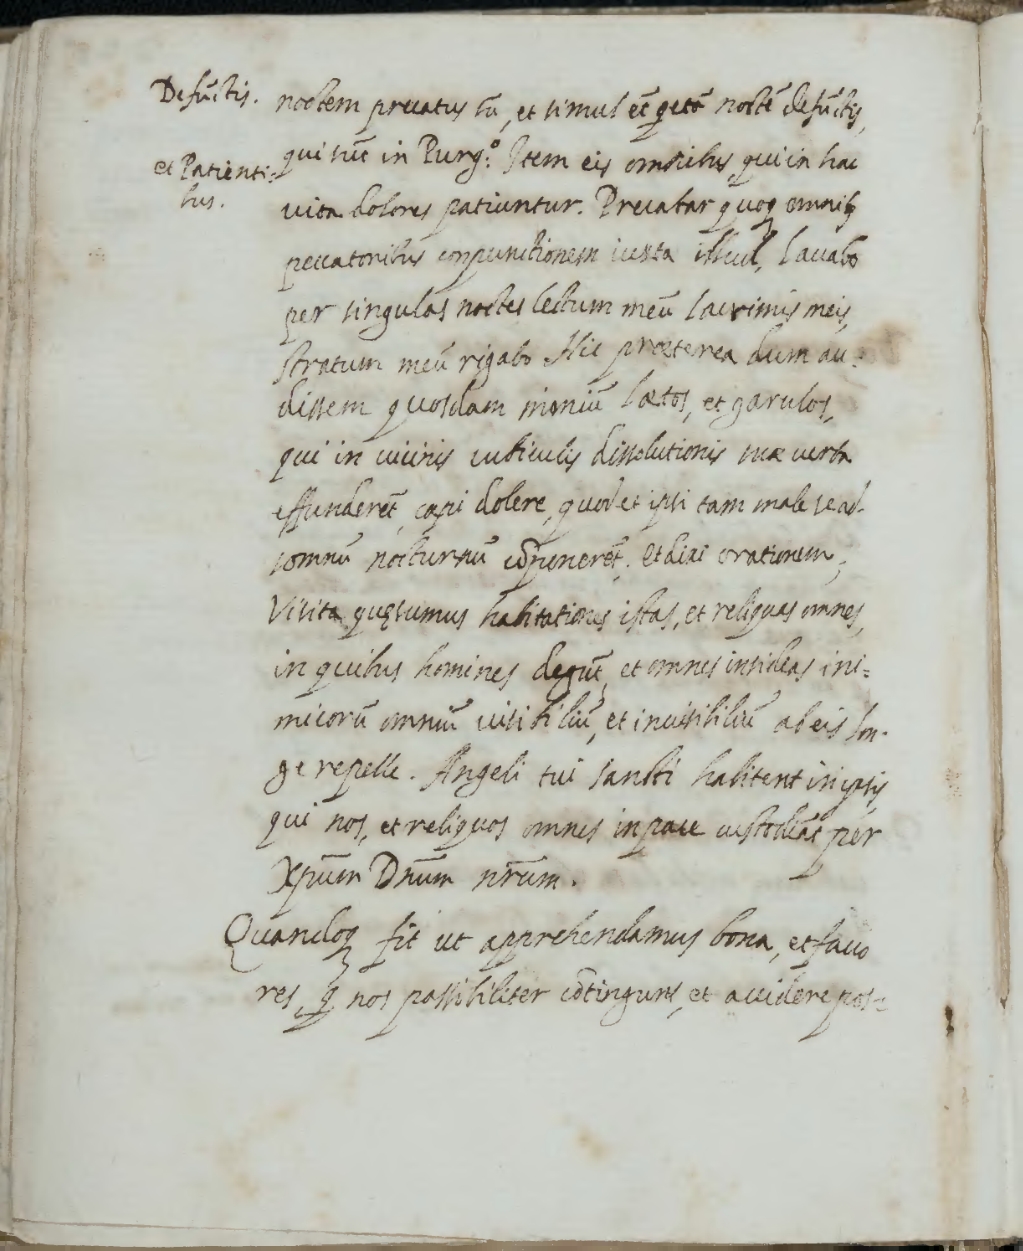 Defūctis.
et Patienti-
bus.
noctem precatus sū, et simul ēt quietā noctē defūctis,
qui sūt in Purg.º Item eis omnibus, qui in hac
vita dolores patiuntur. Precabar quoq omnib
peccatoribus conpunctionem iuxta illud, lavabo
per singulas noctes lectum meū lacrimis meis,
stratum meū rigabo. Hic præterea dum au-
dissem quosdam moniū lætos, et garulos,
qui in vicinis cubiculis dissolutionis suæ verba
effunderēt, cæpi dolere, quod et ipsi tam male se ad
somnū nocturnū cōponerēt. et dixi orationem,
Visita quęsumus habitationes istas, et reliquas omnes,
in quibus homines degūt, et omnes insidias ini-
micorū omniū visibiliū, et invisibiliū ab eis lon-
ge repelle. Angeli tui sancti habitent in ipsis,
qui nos, et reliquos omnes in pace custodiāt per
Xpūm Dnūm nrūm.
Quandoq fit ut apprehendamus bona, et favo
res, q nos passibiliter cōtingunt, et accidere pos-